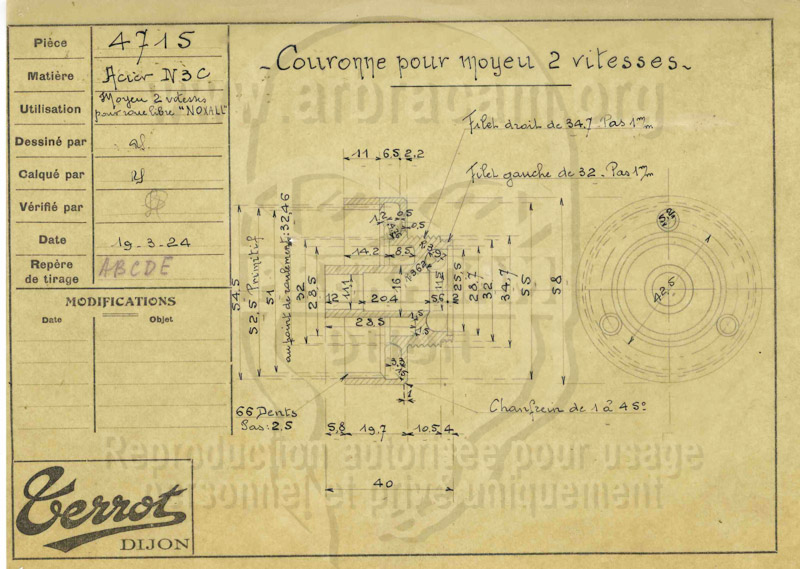 Pièce 4715
Matière Acier N3C
Utilisation Moyeu 2 vitesses
pour roue libre "NOXALL"
Dessiné par
Calqué par
Vérifié par
Date 19-3-24
Repère
de tirage ABCDE
MODIFICATIONS
Date Objet
Terrot
DIJON
- Couronne pour moyeu 2 vitesses -
Filet droit de 34,7. Pas 1 m/m
Filet gauche de 32 - Pas 1 m/m
11 6,5 2,2
1,2 0,5
0,5
14,2 8,5
54,5
52,5 Primitif
51
au point de roulement: 32,46
32
23,5
11,1
16
11,5
25,5
28,7
32
34,7
55
58
12 20,4 5,5
23,5
1,5
66 Dents
Pas: 2,5
Chanfrein de 1 à 45°
5,8 19,7 10,5 4
40
5,2
42,5
www.arbracam.org
Reproduction autorisée pour usage
personnel et privé uniquement